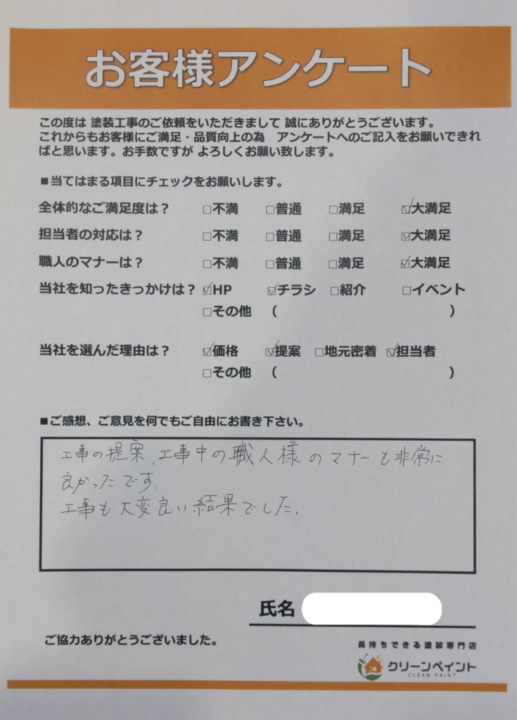 お客様アンケート
この度は 塗装工事のご依頼をいただきまして 誠にありがとうございます。
これからもお客様にご満足・品質向上の為　アンケートへのご記入をお願いできれ
ばと思います。お手数ですが よろしくお願い致します。
■当てはまる項目にチェックをお願いします。
全体的なご満足度は？ □不満 □普通 □満足 ☑大満足
担当者の対応は？ □不満 □普通 □満足 ☑大満足
職人のマナーは？ □不満 □普通 □満足 ☑大満足
当社を知ったきっかけは？ ☑HP ☑チラシ □紹介 □イベント
□その他 （ ）
当社を選んだ理由は？ ☑価格 ☑提案 □地元密着 ☑担当者
□その他 （ ）
■ご感想、ご意見を何でもご自由にお書き下さい。
工事の提案、工事中の職人様のマナーも非常に
良かったです。
工事も大変良い結果でした。
氏名
ご協力ありがとうございました。
長持ちできる塗装専門店
クリーンペイント
CLEAN PAINT